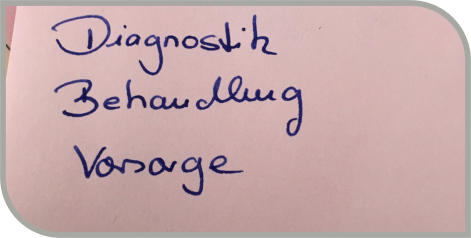 Diagnostik
Behandlung
Vorsorge